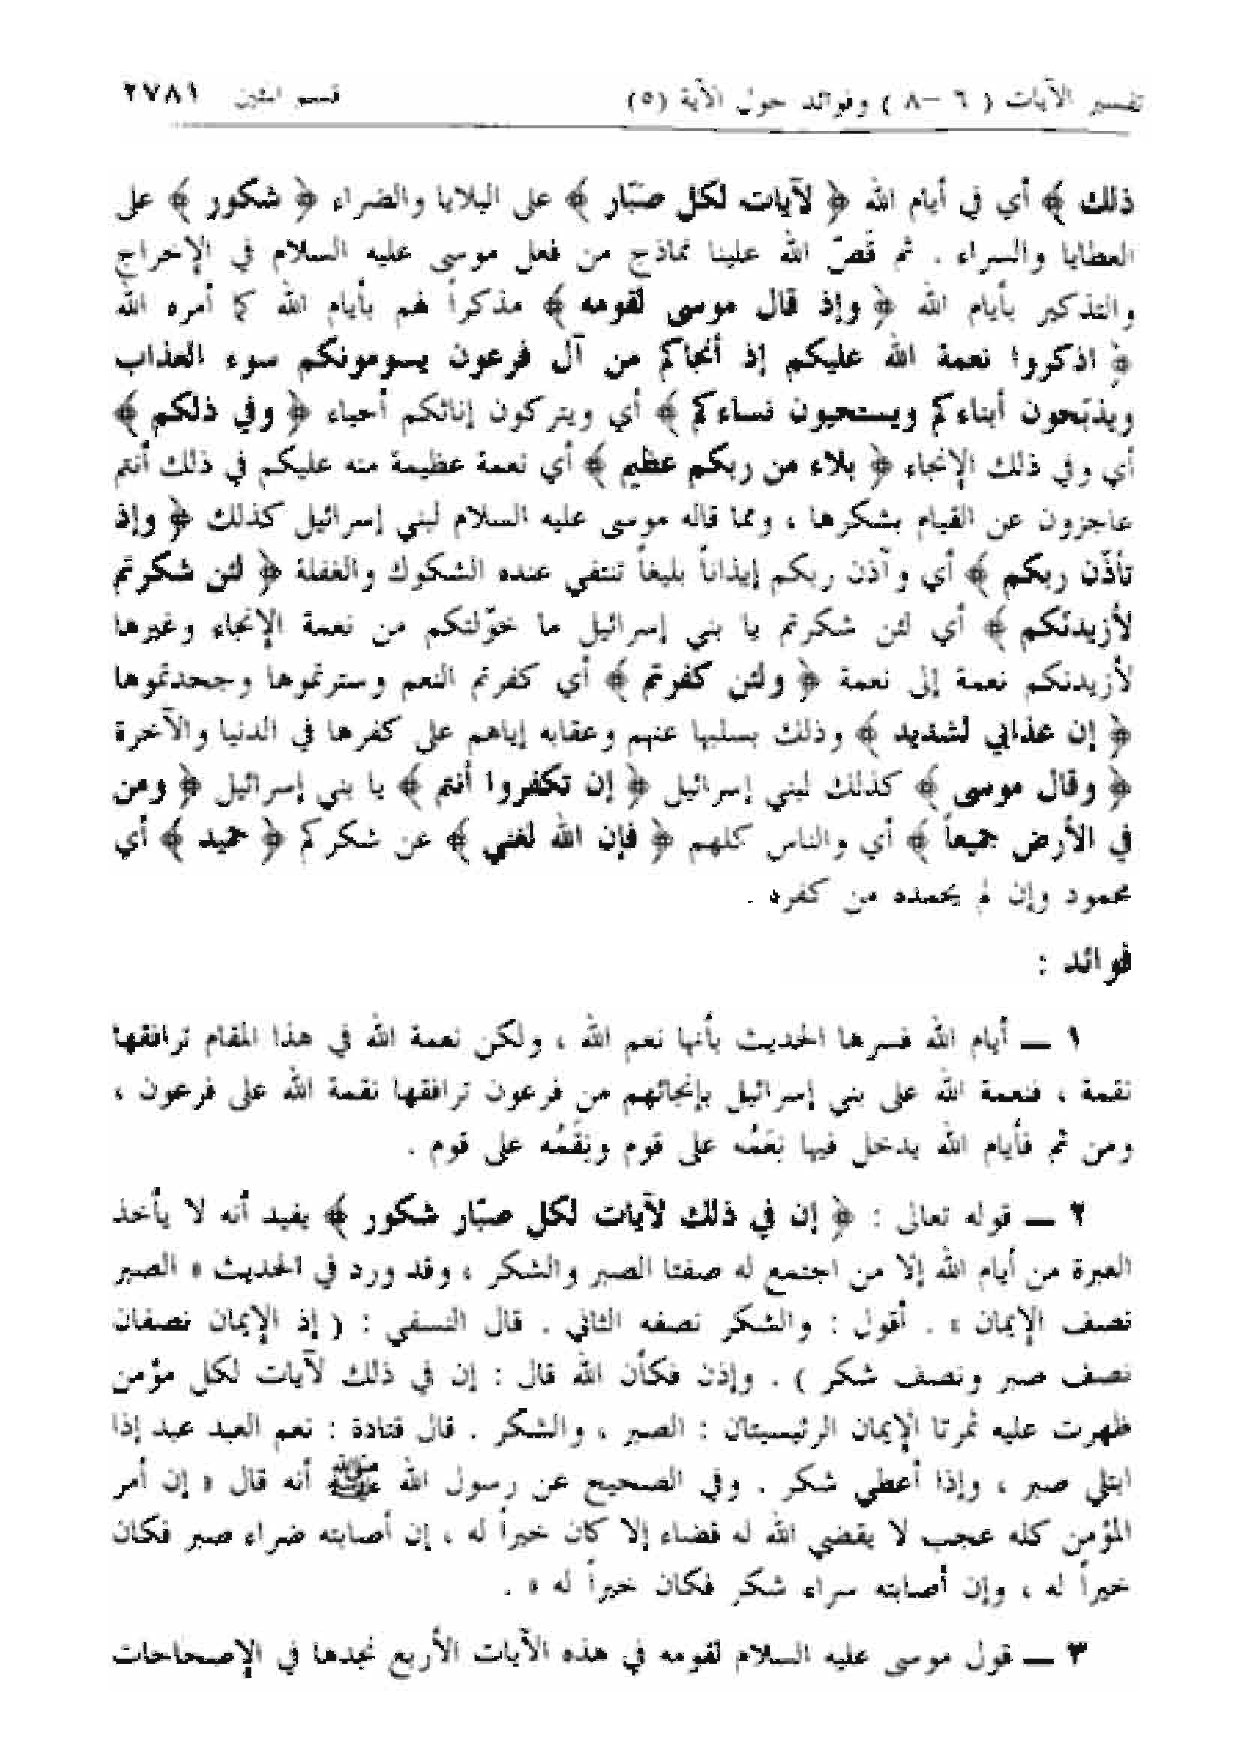 تفسير الآيات ( ٦ – ٨ ) وفوائد حول الآية (٥) قسم المئين ٢٧٨١
ذلك ﴾ أي في أيام الله ﴿ لآيات لكل صبّار ﴾ على البلايا والضراء ﴿ شكور ﴾ على
العطايا والسراء . ثم قصّ الله علينا نماذج من فعل موسى عليه السلام في الإخراج
والتذكير بأيام الله ﴿ وإذ قال موسى لقومه ﴾ مذكراً لهم بأيام الله كما أمره الله
﴿ اذكروا نعمة الله عليكم إذ أنجاكم من آل فرعون يسومونكم سوء العذاب
ويذبّحون أبناءكم ويستحيون نساءكم ﴾ أي ويتركون إناثكم أحياء ﴿ وفي ذلكم ﴾
أي وفي ذلك الإنجاء ﴿ بلاء من ربكم عظيم ﴾ أي نعمة عظيمة منه عليكم في ذلك أنتم
عاجزون عن القيام بشكرها ، ومما قاله موسى عليه السلام لبني إسرائيل كذلك ﴿ وإذ
تأذّن ربكم ﴾ أي وآذن ربكم إيذاناً بليغاً تنتفي عنده الشكوك والغفلة ﴿ لئن شكرتم
لأزيدنّكم ﴾ أي لئن شكرتم يا بني إسرائيل ما خوّلتكم من نعمة الإنجاء وغيرها
لأزيدنكم نعمة إلى نعمة ﴿ ولئن كفرتم ﴾ أي كفرتم النعم وسترتموها وجحدتموها
﴿ إن عذابي لشديد ﴾ وذلك بسلبها عنهم وعقابه إياهم على كفرها في الدنيا والآخرة
﴿ وقال موسى ﴾ كذلك لبني إسرائيل ﴿ إن تكفروا أنتم ﴾ يا بني إسرائيل ﴿ ومن
في الأرض جميعاً ﴾ أي والناس كلهم ﴿ فإن الله لغني ﴾ عن شكركم ﴿ حميد ﴾ أي
محمود وإن لم يحمده من كفره .
فوائد :
١ ــ أيام الله فسرها الحديث بأنها نعم الله ، ولكن نعمة الله في هذا المقام ترافقها
نقمة ، فنعمة الله على بني إسرائيل بإنجائهم من فرعون ترافقها نقمة الله على فرعون ،
ومن ثم فأيام الله يدخل فيها نِعَمُه على قوم ونِقَمُه على قوم .
٢ ــ قوله تعالى : ﴿ إن في ذلك لآيات لكل صبّار شكور ﴾ يفيد أنه لا يأخذ
العبرة من أيام الله إلا من اجتمع له صفتا الصبر والشكر ، وقد ورد في الحديث « الصبر
نصف الإيمان » . أقول : والشكر نصفه الثاني . قال النسفي : ( إذ الإيمان نصفان
نصف صبر ونصف شكر ) . وإذن فكأن الله قال : إن في ذلك لآيات لكل مؤمن
ظهرت عليه ثمرتا الإيمان الرئيسيتان : الصبر ، والشكر . قال قتادة : نعم العبد عبد إذا
ابتلي صبر ، وإذا أعطي شكر . وفي الصحيح عن رسول الله ﷺ أنه قال « إن أمر
المؤمن كله عجب لا يقضي الله له قضاء إلا كان خيراً له ، إن أصابته ضراء صبر فكان
خيراً له ، وإن أصابته سراء شكر فكان خيراً له » .
٣ ــ قول موسى عليه السلام لقومه في هذه الآيات الأربع نجدها في الإصحاحات